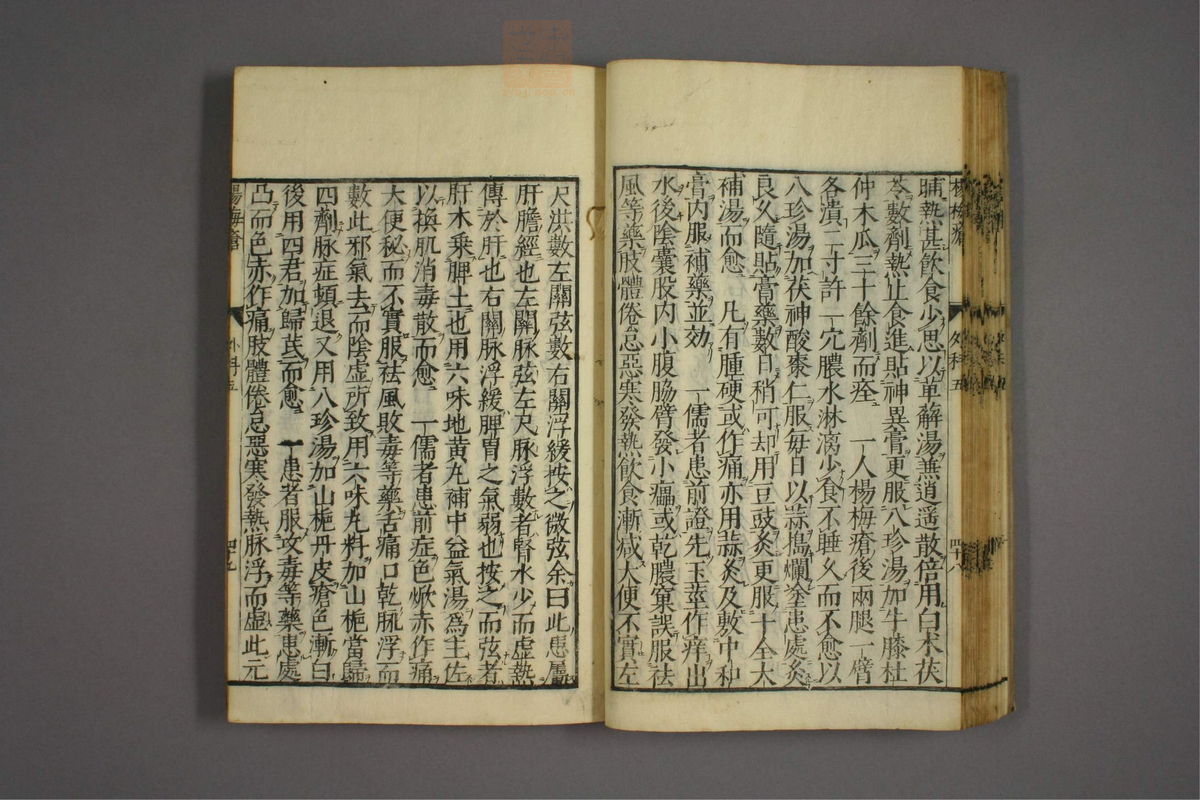 楊梅瘡 外科五 四十八
晡熱甚飲食少思以萆薢湯兼逍遥散倍用白朮茯
苓數劑熱止食進貼神異膏更服八珍湯加牛膝杜
仲木瓜三十餘劑而痊 一人楊梅瘡後兩腿一臂
各潰二寸許一穴膿水淋漓少食不睡久而不愈以
八珍湯加茯神酸棗仁服每日以蒜搗爛塗患處灸
良久隨貼膏藥數日稍可却用豆豉灸更服十全大
補湯而愈 凡有腫硬或作痛亦用蒜灸及敷中和
膏内服補藥並効 一儒者患前證先玉莖作痒出
水後陰囊股内小腹脇臂發小瘟或乾膿窠誤服祛
風等藥肢體倦怠惡寒發熱飲食漸减大便不實左
尺洪數左關弦數右關浮緩按之微弦余曰此患屬
肝膽經也左關脉弦左尺脉浮數者腎水少而虚熱
傳於肝也右關脉浮緩脾胃之氣弱也按之而弦者
肝木乗脾土也用六味地黄丸補中益氣湯爲主佐
以換肌消毒散而愈 一儒者患前症色焮赤作痛
大便秘而不實服祛風敗毒等藥舌痛口乾脉浮而
數此邪氣去而陰虚所致用六味丸料加山梔當歸
四劑脉症頓退又用八珍湯加山梔丹皮瘡色漸白
後用四君加歸芪而愈 一患者服攻毒等藥患處
凸而色赤作痛肢體倦怠惡寒發熱脉浮而虚此元
楊梅瘡 外科五 四十九